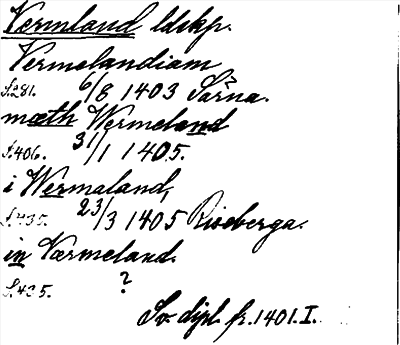 Vermland ldskp.
Vermelandiam
S.281. 6/8 1403 Särna.
mæth Wermeland
S.406. 31/1 1405.
i Wermaland,
S.435. 23/3 1405 Riseberga.
inVærmeland.
S.435. ?
Sv. dipl. fr. 1401. I.